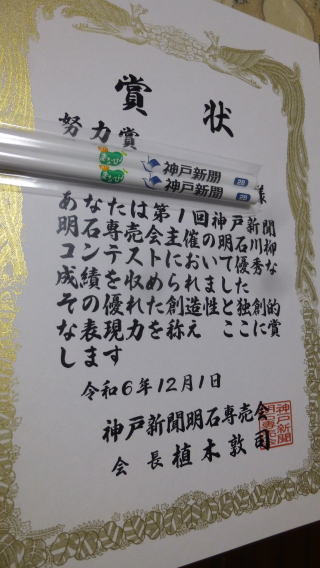 賞状
努力賞
神戸新聞 2B
神戸新聞 2B
様
あなたは第1回神戸新聞
明石専売会主催の明石川柳
コンテストにおいて優秀な
成績を収められました
その優れた創造性と独創的
な表現力を称え ここに賞
します
令和6年12月1日
神戸新聞明石専売会
会長 植木敦司
神戸新聞
明石専売会